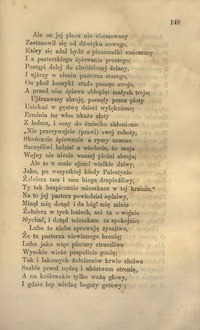 149
Ale on jej płacz nie obamowany
Zastanowił się od dźwięku nowego,
Który się zdał bydź z piszczałki zmieszany
I z pasterskiego śpiewania prostego;
Postąpi dalej do chróścianej ściany,
I ujźrzy w cieniu pasterza starego,
On plótł koszyki stado pasząc swoje,
A przed nim śpiewa chłopiąt małych troje;
Ujźrzawszy zbroję, poczęły przez płoty
Uciekać w gęstwy dzieci wylęknione;
Erminia im włos ukaże złoty
Z hełmu, i oczy do śmiechu skłonione:
„Nie przerywajcie (prawi) swej roboty,
Skończcie śpiewanie a rymy uczone
Szczęśliwi ludzie! a wiedzcie, że moja
Wojny nie niesie waszej pieśni zbroja;
Ale to w mnie ojcze! wielkie dziwy,
Jako, po wszystkiej kiedy Palestynie
Żołnierz tam i sam biega drapieżliwy,
Ty tak bezpiecznie mieszkasz w tej krainie.“
Na to jej pasterz powiedział sędziwy,
Minął mię dotąd i da bóg! mię minie
Żołnierz w tych lesiech, ani tu o wojnie
Słychać, i dotąd mieszkam tu spokojnie;
Lubo to nieba sprawują życzliwe,
Że tu pasterza niewinnego bronią;
Lubo jako więc pioruny straszliwe
Wysokie wieże pospolicie gonią;
Tak i łakomych żołnierzów krwie chciwa
Szable przed nędzą i ubóstwem stronią,
A na królewskie tylko ważą głowy,
I gdzie łup wiedzą bogaty gotowy;